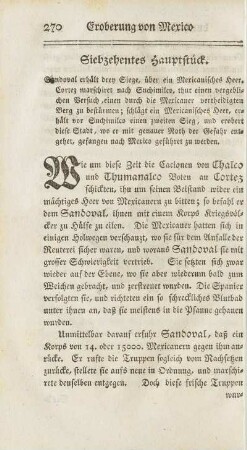 270 Eroberung von Mexico
Siebzehentes Hauptstück.
Sandoval erhält drey Siege, über ein Mexicanisches Heer,
Cortez marschiret nach Suchimilco, thut einen vergeblichen
Versuch, einen durch die Mexicaner vertheidigten
Berg zu bestürmen; schlägt ein Mexicanisches Heer, erhält
vor Suchimilco einen zweiten Sieg, und erobert
diese Stadt, wo er mit genauer Noth der Gefahr entgehet,
gefangen nach Mexico geführet zu werden.
Wie um diese Zeit die Cacionen von Chalco
und Thumanalco Boten an Cortez
schickten, ihn um seinen Beistand wider ein
mächtiges Heer von Mexicanern zu bitten; so befahl er
dem Sandoval, ihnen mit einem Korps Kriegsvölker
zu Hülfe zu eilen. Die Mexicaner hatten sich in
einigen Holwegen verschanzt, wo sie für dem Anfalle der
Reuterei sicher waren, und woraus Sandoval sie mit
grosser Schwierigkeit vertrieb. Sie setzten sich zwar
wieder auf der Ebene, wo sie aber wiederum bald zum
Weichen gebracht, und zerstreuet wurden. Die Spanier
verfolgten sie, und richteten ein so schreckliches Blutbad
unter ihnen an, daß sie meistens in die Pfanne gehauen
wurden.
Unmittelbar darauf erfuhr Sandoval, daß ein
Korps von 14. oder 15000. Mexicanern gegen ihn anrücke.
Er rufte die Truppen sogleich vom Nachsetzen
zurücke, stellete sie aufs neue in Ordnung, und marschirte
denselben entgegen. Doch diese frische Truppen
wur-